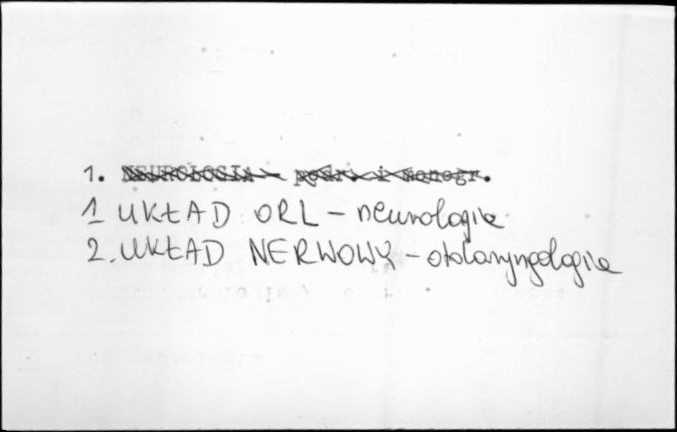 1. NEUROLOGIA – podr. i monogr.
1 UKŁAD ORL – neurologia
2. UKŁAD NERWOWY – otolaryngologia